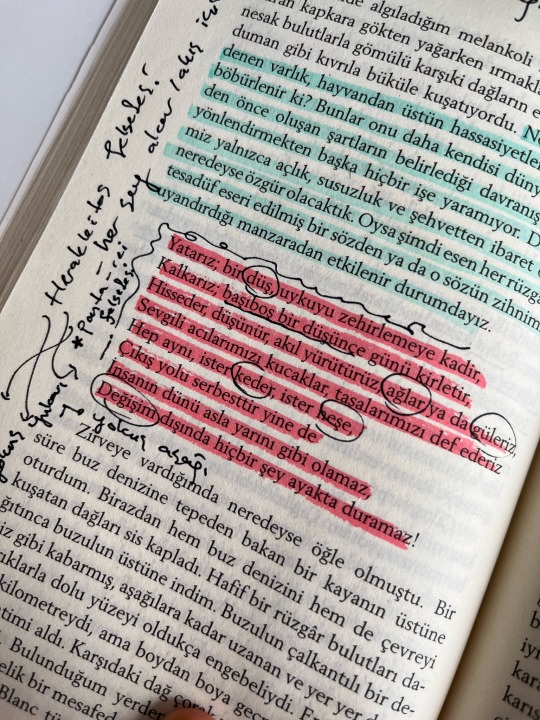 de algıladığım melankoli
kapkara gökten yağarken ırmakla
nesak bulutlarla gömülü karşıki dağların e
duman gibi kıvrıla büküle kuşatıyordu. N
denen varlık, hayvandan üstün hassasiyetle
böbürlenir ki? Bunlar onu daha kendisi düny
den önce oluşan şartların belirlediği davranış
yönlendirmekten başka hiçbir işe yaramıyor. D
miz yalnızca açlık, susuzluk ve şehvetten ibaret
neredeyse özgür olacaktık. Oysa şimdi esen her rüzga
tesadüf eseri edilmiş bir sözden ya da o sözün zihnim
uyandırdığı manzaradan etkilenir durumdayız.
Yatarız; bir düş uykuyu zehirlemeye kadir,
Kalkarız; başıboş bir düşünce günü kirletir,
Hisseder, düşünür, akıl yürütürüz ağlar ya da güleriz,
Sevgili acılarımızı kucaklar, tasalarımızı def ederiz
Hep aynı, ister keder ister neşe
Çıkış yolu serbesttir yine de
İnsanın dünü asla yarını gibi olamaz,
Değişim dışında hiçbir şey ayakta duramaz!
Zirveye vardığımda neredeyse öğle olmuştu. Bir
süre buz denizine tepeden bakan bir kayanın üstüne
oturdum. Birazdan hem buz denizini hem de çevreyi
kuşatan dağları sis kapladı. Hafif bir rüzgâr bulutları da-
ğıtınca buzulun üstüne indim. Buzulun çalkantılı bir de-
iz gibi kabarmış, aşağılara kadar uzanan ve yer yer
ıklarla dolu yüzeyi oldukça engebeliydi.
kilometreydi, ama boydan boya geçm
timi aldı. Karşıdaki dağ
elik bir mesafed Bulunduğum yerder
Blanc
Herakleitos felsefesi
*Panta her şey akar/akış
felsefesi
yokuş yukarı
→ yokuş aşağı